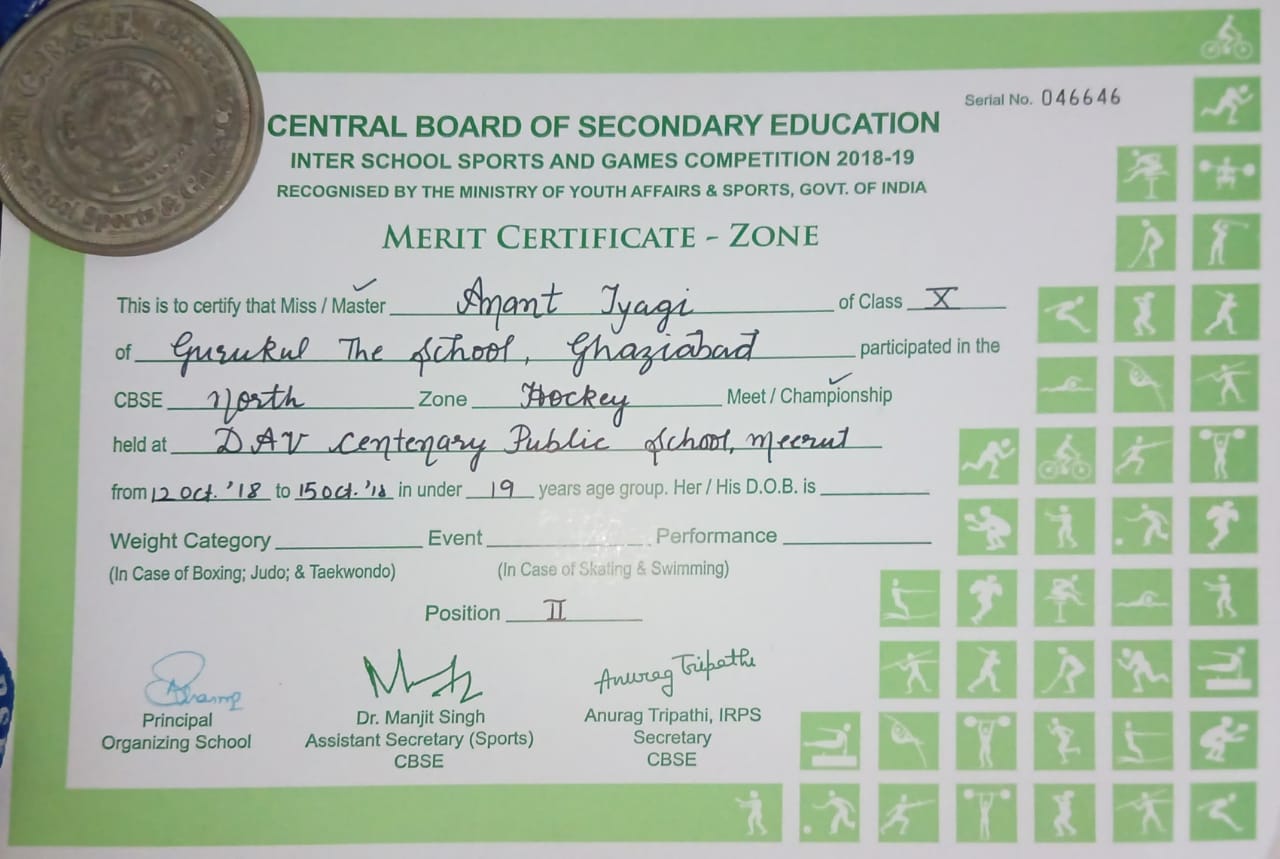 C.B.S.E.
School Sports &
Serial No. 046646
CENTRAL BOARD OF SECONDARY EDUCATION
INTER SCHOOL SPORTS AND GAMES COMPETITION 2018-19
RECOGNISED BY THE MINISTRY OF YOUTH AFFAIRS & SPORTS, GOVT. OF INDIA
MERIT CERTIFICATE - ZONE
This is to certify that Miss / Master Anant Tyagi of Class X
of Gurukul The School, Ghaziabad participated in the
CBSE North Zone Hockey Meet / Championship
held at DAV Centenary Public School, Meerut
from 12 Oct. '18 to 15 Oct. '18 in under 19 years age group. Her / His D.O.B. is
Weight Category Event Performance
(In Case of Boxing; Judo; & Taekwondo) (In Case of Skating & Swimming)
Position II
Anurag Tripathi
Principal Dr. Manjit Singh Anurag Tripathi, IRPS
Organizing School Assistant Secretary (Sports) Secretary
CBSE CBSE